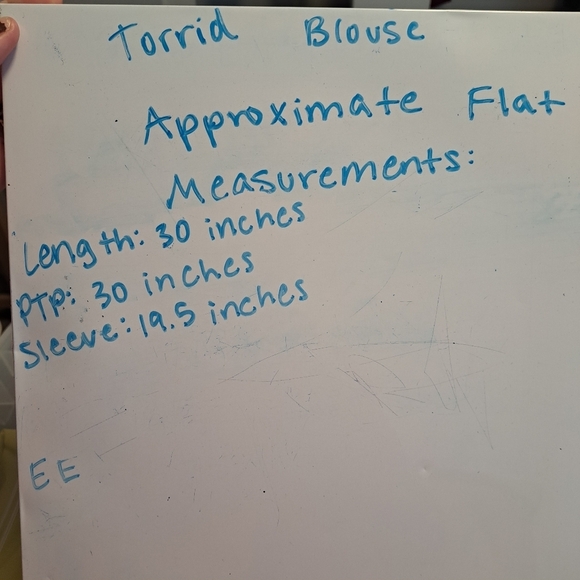 Torrid Blouse
Approximate Flat
Measurements:
Length: 30 inches
PTP: 30 inches
Sleeve: 19.5 inches
EE